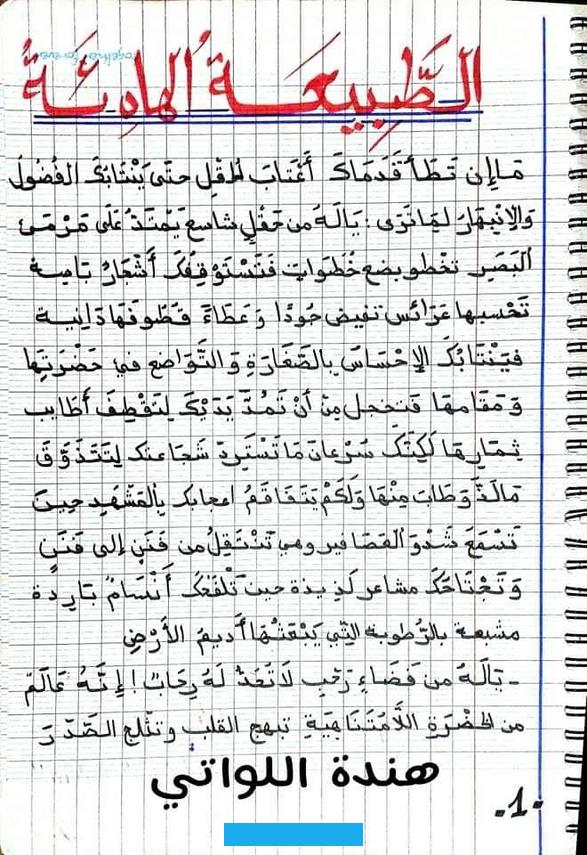 الطَّبِيعَةُ الهَادِئَةُ
together forever
مَا إِن تَطَأ قَدَمَاكَ أَعْتَابَ الحَقْلِ حتّى يَنْتَابَكَ الفُضُول
وَالِانْبِهَارُ لِمَا تَرَى : يَالَهُ من حَقْلٍ شاسعٍ يَمْتَدُّ عَلَى مَرْمَى
البَصَرِ تخطو بضع خُطُوَاتٍ فَتَسْتَوْقِفُكَ أَشْجَارٌ بَاسِقة
تَحْسبها عَرَائس تفيض جُودًا وَ عَطَاءً قطُوفُهَا دَانِيَة
فَيَنْتَابُكَ الإِحْسَاسُ بِالصَّغَارَةِ وَ التَّوَاضع في حَضْرَتِهَا
وَ مَقَامها فتخجل مِنْ أَنْ تَمُدَّ يَدَيْكَ لِتَقْطِفَ أَطَايب
ثِمَارِهَا لَكِنَّكَ سَرْعَانَ مَا تَسْتَرِدّ شَجَاعتك لِتَتَذَوَّقَ
مَا لَذَّ وَ طَابَ مِنْهَا وَلَكَمْ يَتَفَاقَمُ اعجابك بِالمَشْهَدِ حِينَ
تَسْمَعَ شَدْوَ العَصَافير وهي تَنْتَقِلُ من فَنَنٍ إلى فَنَنٍ
وَ تَجْتَاحُكَ مشاعر لَذِيذة حين تَلْفَحُكَ أَنْسَامٌ بَارِدة
مشبعة بالرُّطوبة التِّي يَنْفثُهَا أَدِيمُ الأَرْضِ
- يَالَهُ من فَضَاءٍ رَحْبٍ لَا تُعَدُّ لَهُ رِحَابٌ ! إِنَّهُ عَالَمٌ
من الخُضْرَةِ اللَّامُتَنَاهِيَةِ تبهج القلب وتثلج الصَّدْرَ
هندة اللواتي
.1.